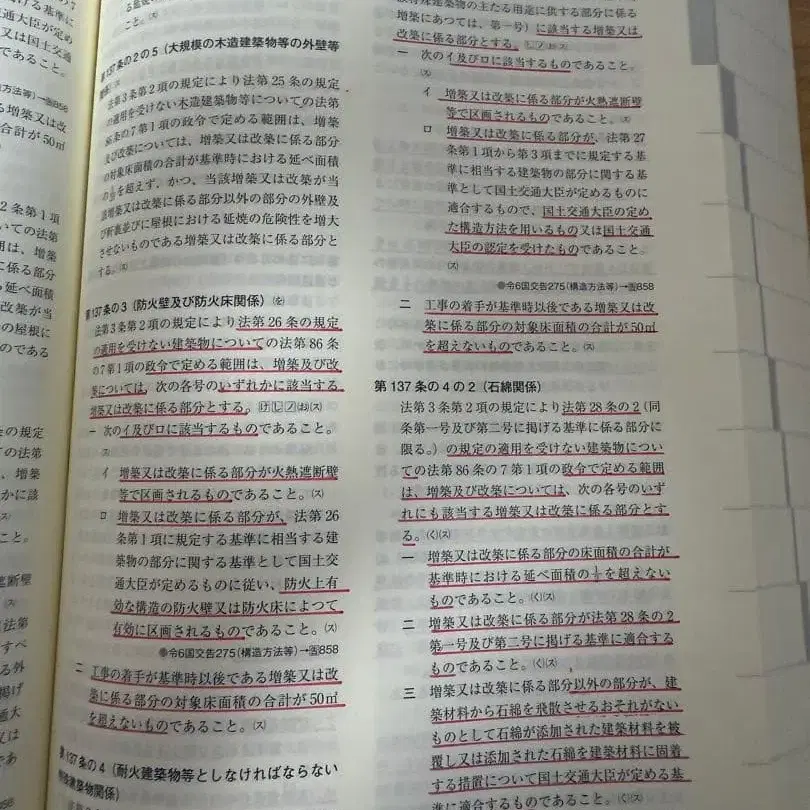 こと。㋜
第137条の2の5（大規模の木造建築物等の外壁等
法第3条第2項の規定により法第25条の規定
の適用を受けない木造建築物等についての法第
86条の7第1項の政令で定める範囲は、増築
及び改築については、増築又は改築に係る部分
の対象床面積の合計が基準時における延べ面積
を超えず、かつ、当該増築又は改築が当
該増築又は改築に係る部分以外の部分の外壁及
び軒裏並びに屋根における延焼の危険性を増大
させないものである増築又は改築に係る部分と
する。㋜
第137条の3（防火壁及び防火床関係）
法第3条第2項の規定により法第26条の規定
の適用を受けない建築物についての法第86条
の7第1項の政令で定める範囲は、増築及び改
築については、次の各号のいずれかに該当する
増築又は改築に係る部分とする。
一 次のイ及びロに該当するものであること。
㋜
イ 増築又は改築に係る部分が火熱遮断壁
等で区画されるものであること。㋜
ロ 増築又は改築に係る部分が、法第26
条第1項に規定する基準に相当する建
築物の部分に関する基準として国土交
通大臣が定めるものに従い、防火上有
効な構造の防火壁又は防火床によつて
有効に区画されるものであること。㋜
●令6国交告275(構造方法等)→告858
二 工事の着手が基準時以後である増築又は改
築に係る部分の対象床面積の合計が50㎡
を超えないものであること。㋜
第137条の4（耐火建築物等としなければならない
特殊建築物関係）
特殊建築物の主たる用途に供する部分に係る
増築にあつては、第一号）に該当する増築又は
改築に係る部分とする。
一 次のイ及びロに該当するものであること。
㋜
イ 増築又は改築に係る部分が火熱遮断壁
等で区画されるものであること。㋜
ロ 増築又は改築に係る部分が、法第27
条第1項から第3項までに規定する基
準に相当する建築物の部分に関する基
準として国土交通大臣が定めるものに
適合するもので、国土交通大臣の定め
た構造方法を用いるもの又は国土交通
大臣の認定を受けたものであること。
㋜
●令6国交告275(構造方法等)→告858
二 工事の着手が基準時以後である増築又は改
築に係る部分の対象床面積の合計が50㎡
を超えないものであること。㋜
第137条の4の2（石綿関係）
法第3条第2項の規定により法第28条の2（同
条第一号及び第二号に掲げる基準に係る部分に
限る。）の規定の適用を受けない建築物につい
ての法第86条の7第1項の政令で定める範囲
は、増築及び改築については、次の各号のいず
れにも該当する増築又は改築に係る部分とす
る。㋗㋜
一 増築又は改築に係る部分の床面積の合計が
基準時における延べ面積の½を超えない
ものであること。㋗㋜
二 増築又は改築に係る部分が法第28条の2
第一号及び第二号に掲げる基準に適合する
ものであること。㋗㋜
三 増築又は改築に係る部分以外の部分が、建
築材料から石綿を飛散させるおそれがない
ものとして石綿が添加された建築材料を被
覆し又は添加された石綿を建築材料に固着
する措置について国土交通大臣が定める基
準に適合するものであること。㋗㋜